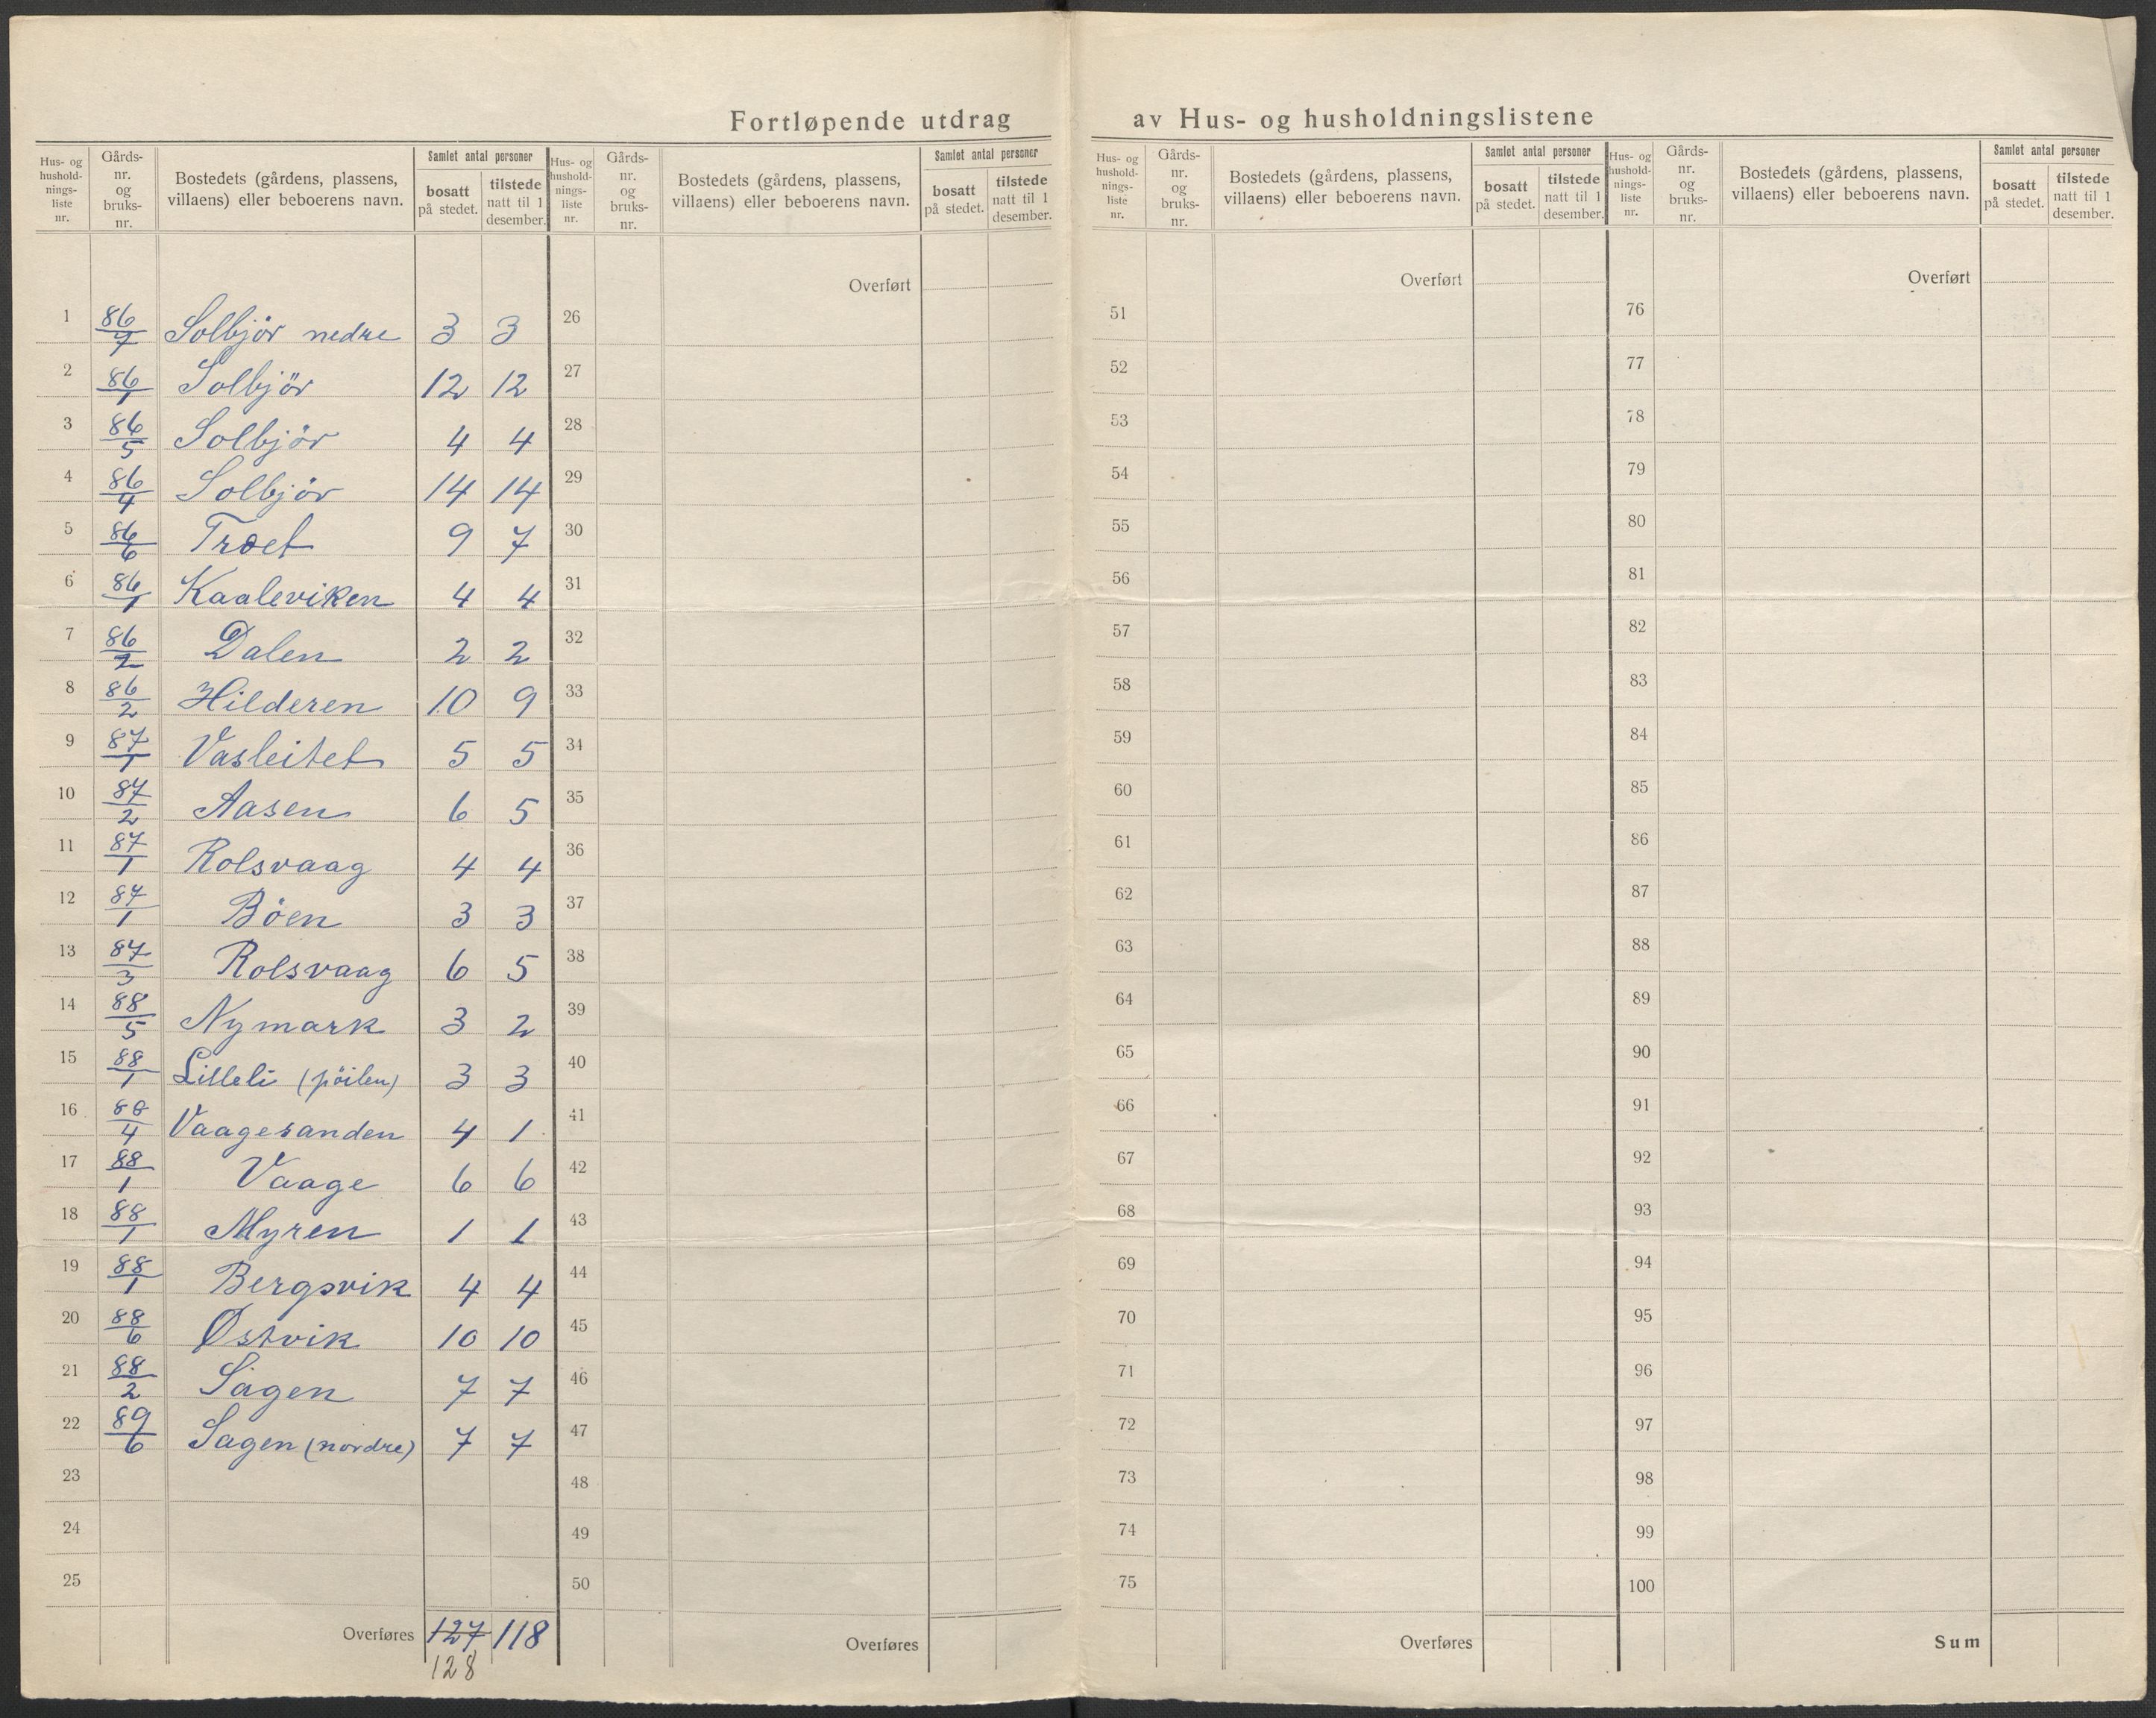 Fortløpende utdrag av Hus- og husholdningslistene
Hus- og hushold- nings- liste nr. | Gårds- nr. og bruks- nr. | Bostedets (gårdens, plassens, villaens) eller beboerens navn. | Samlet antal personer | bosatt på stedet. | tilstede natt til 1 desember.
Hus- og hushold- nings- liste nr. | Gårds- nr. og bruks- nr. | Bostedets (gårdens, plassens, villaens) eller beboerens navn. | Samlet antal personer | bosatt på stedet. | tilstede natt til 1 desember.
Hus- og hushold- nings- liste nr. | Gårds- nr. og bruks- nr. | Bostedets (gårdens, plassens, villaens) eller beboerens navn. | Samlet antal personer | bosatt på stedet. | tilstede natt til 1 desember.
Hus- og hushold- nings- liste nr. | Gårds- nr. og bruks- nr. | Bostedets (gårdens, plassens, villaens) eller beboerens navn. | Samlet antal personer | bosatt på stedet. | tilstede natt til 1 desember.
Overført Overført Overført
1 86/7 Solbjör nedre 3 3 26 51 76
2 86/1 Solbjör 12 12 27 52 77
3 86/5 Solbjör 4 4 28 53 78
4 86/4 Solbjör 14 14 29 54 79
5 86/6 Træet 9 7 30 55 80
6 86/1 Kaaleviken 4 4 31 56 81
7 86/2 Dalen 2 2 32 57 82
8 86/2 Hilderen 10 9 33 58 83
9 87/1 Vasleitet 5 5 34 59 84
10 87/2 Aasen 6 5 35 60 85
11 87/1 Rolsvaag 4 4 36 61 86
12 87/1 Böen 3 3 37 62 87
13 87/3 Rolsvaag 6 5 38 63 88
14 88/5 Nymark 3 2 39 64 89
15 88/1 Lilleli (pöilen) 3 3 40 65 90
16 88/4 Vaagesanden 4 1 41 66 91
17 88/1 Vaage 6 6 42 67 92
18 88/1 Myren 1 1 43 68 93
19 88/1 Bergsvik 4 4 44 69 94
20 88/6 Østvik 10 10 45 70 95
21 88/2 Sagen 7 7 46 71 96
22 89/6 Sagen (nordre) 7 7 47 72 97
23 48 73 98
24 49 74 99
25 50 75 100
Overføres 127 118 Overføres Overføres Sum
128